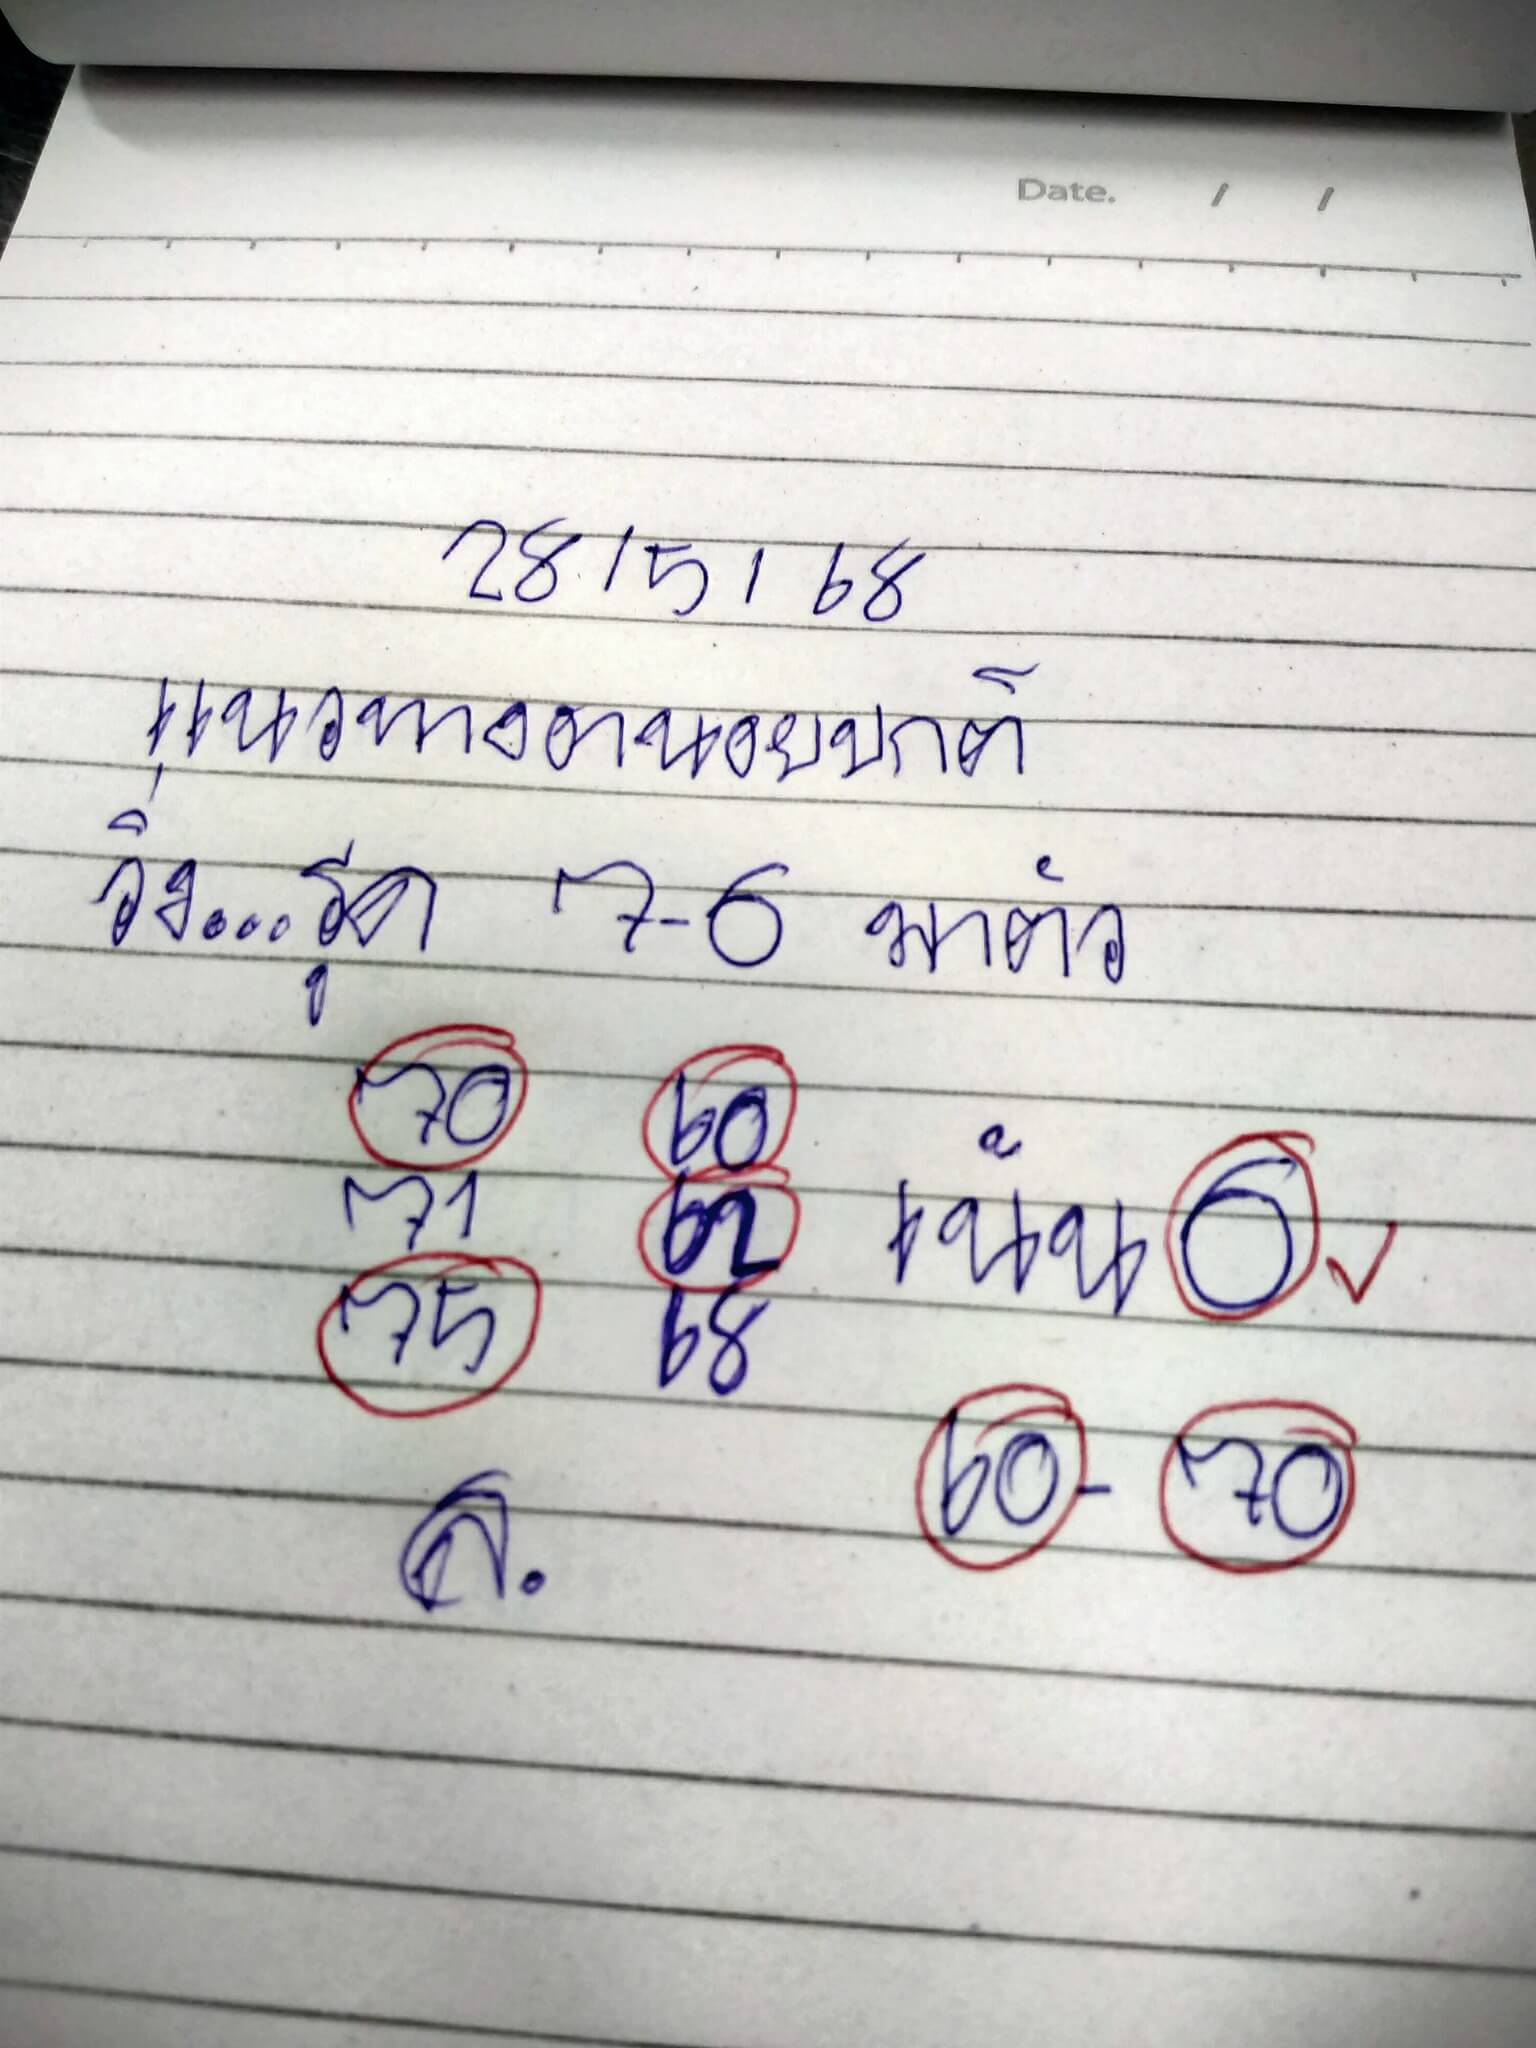 Date. / /
28/5/68
แนวทางฮานอยปกติ
วิ่ง...รูด 7-6 มาตัว
70 60
71 62 เน้น 6 ✓
75 68
60-70